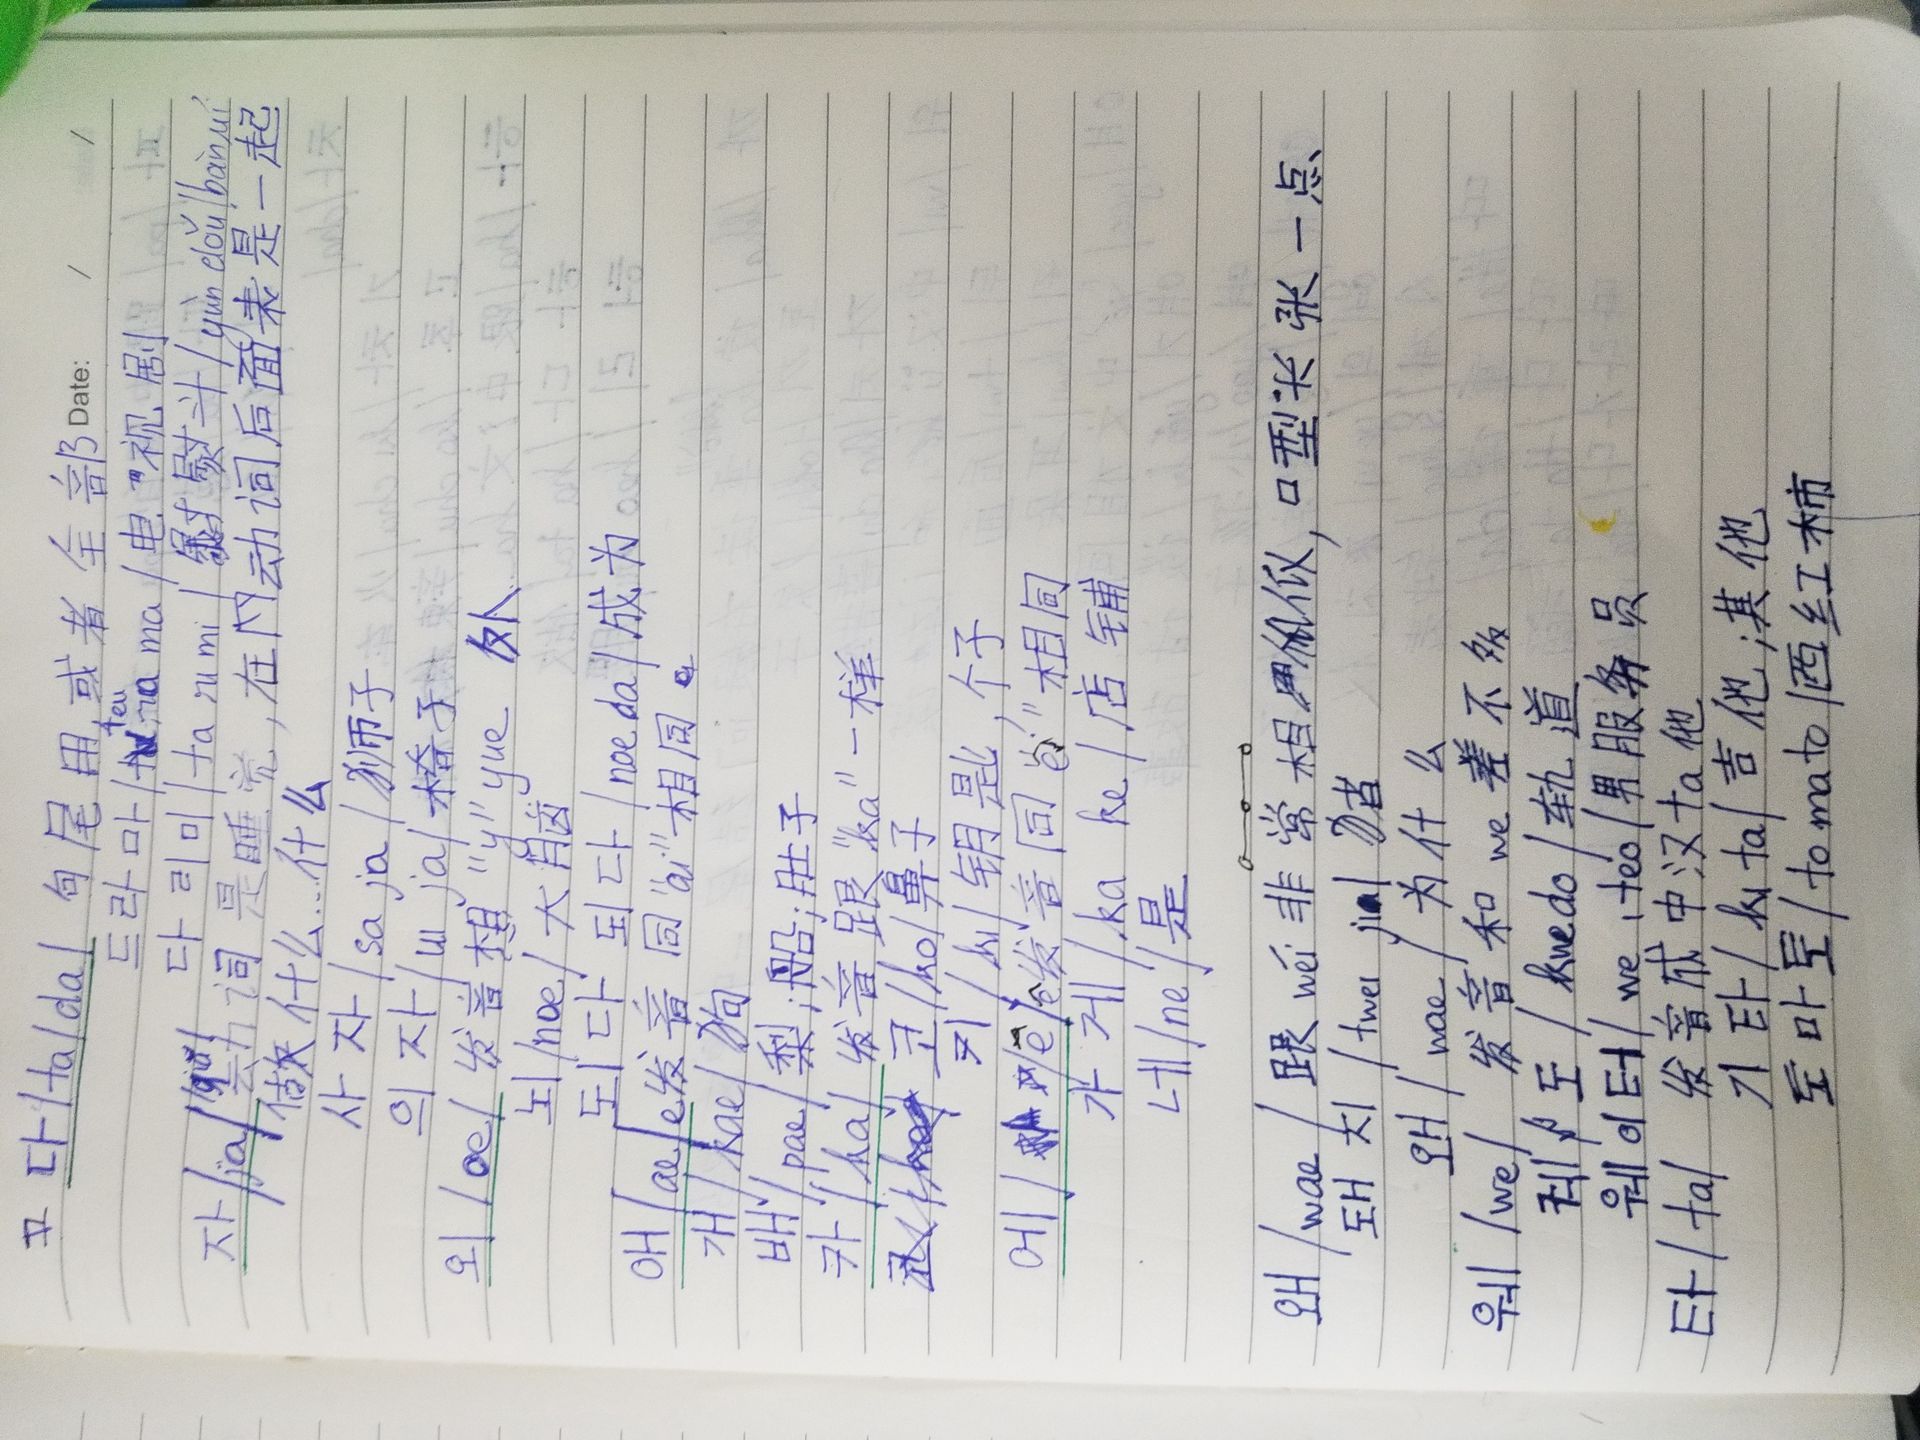 Date: / /
다 /ta/da/ 句尾用或者全部
드라마 /teu ra ma/ 电视剧
다리미 /ta ru mi/ 熨斗 /yun dǒu/ bànní
자 /jia/ 动词是睡觉, 在动词后面表是一起
做什么…什么
사자 /sa ja/ 狮子
의자 /ui ja/ 椅子
외 /oe/ 发音 "y" yue 外
뇌 /noe/ 大脑
되다 되다 /noe da/ 成为
애 /ae/e发音同"ai"相同。
개 /kae/ 狗
배 /pae/ 梨;船;肚子
카 /ka/ 发音跟"ka"一样
코 /ko/ 鼻子
키 /ki/ 钥匙,个子
에 /e/e发音同"ei"相同
가게 /ka ke/ 店铺
네 /ne/ 是
왜 /wae/ 跟wēi非常相似, 口型张一点
돼지 /twei jia/ 猪
왜 /wae/ 为什么
웨 /we/ 发音和we差不多
궤도 /kwedo/ 轨道
웨이터 /we,teo/ 男服务员
타 /ta/ 发音成中汉ta他
기타 /ki ta/ 吉他;其他
토마토 /to mato/ 西红柿